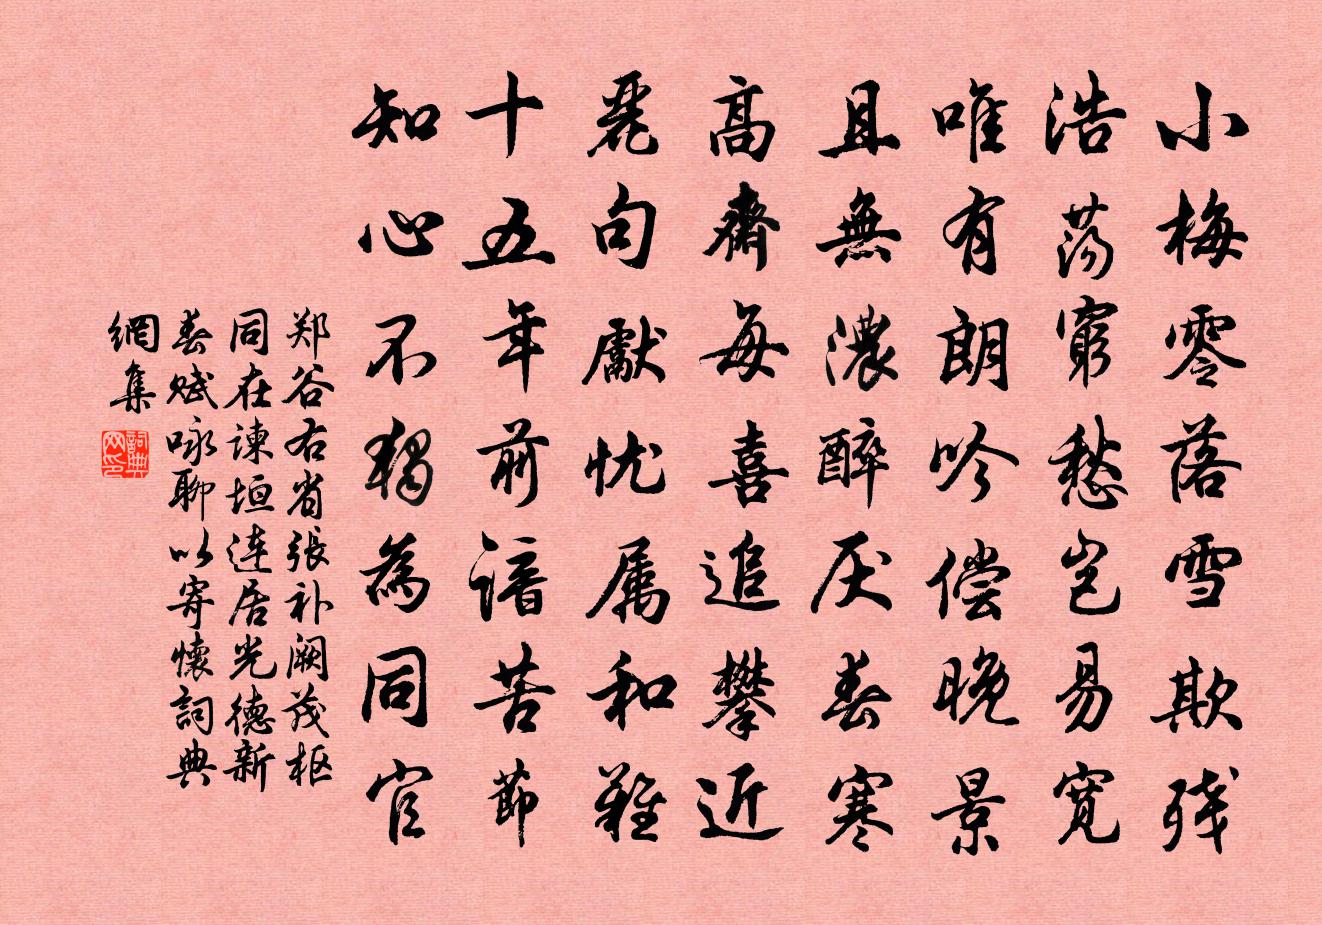 小梅零落雪欺残
浩荡窮愁岂易寬
唯有朗吟偿晚景
且無濃醉厌春寒
高齋每喜追攀近
麗句獻忧属和難
十五年前諳苦節
知心不獨為同官
郑谷右省張补阙茂枢
同在諫垣連居光德新
春赋咏聊以寄懷詞典
網集
詞典网印